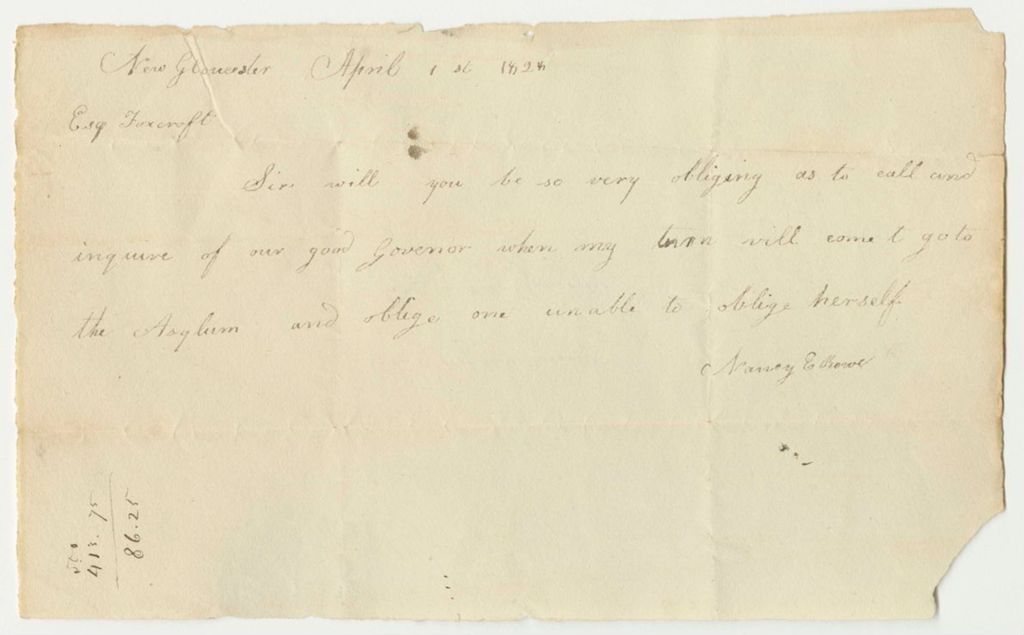 New Gloucester April 1 st 1828
Esq Foxcroft
Sir will you be so very obliging as to call and
inquire of our good Govenor when my turn will come t go to
the Asylum and oblige one unable to oblige herself
Nancy E
500
413.75
86.25